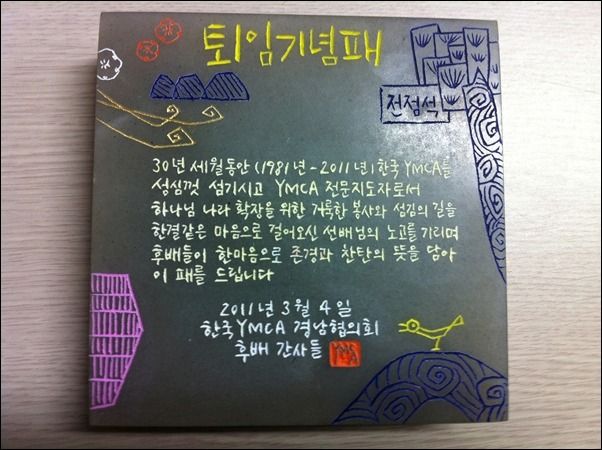 퇴임기념패
전점석
30년 세월동안 (1981년-2011년) 한국 YMCA를
성심껏 섬기시고 YMCA 전문지도자로서
하나님 나라 확장을 위한 거룩한 봉사와 섬김의 길을
한결같은 마음으로 걸어오신 선배님의 노고를 기리며
후배들이 한마음으로 존경과 찬탄의 뜻을 담아
이 패를 드립니다
2011년 3월 4일
한국YMCA 경남협의회
후배 간사들
YMCA